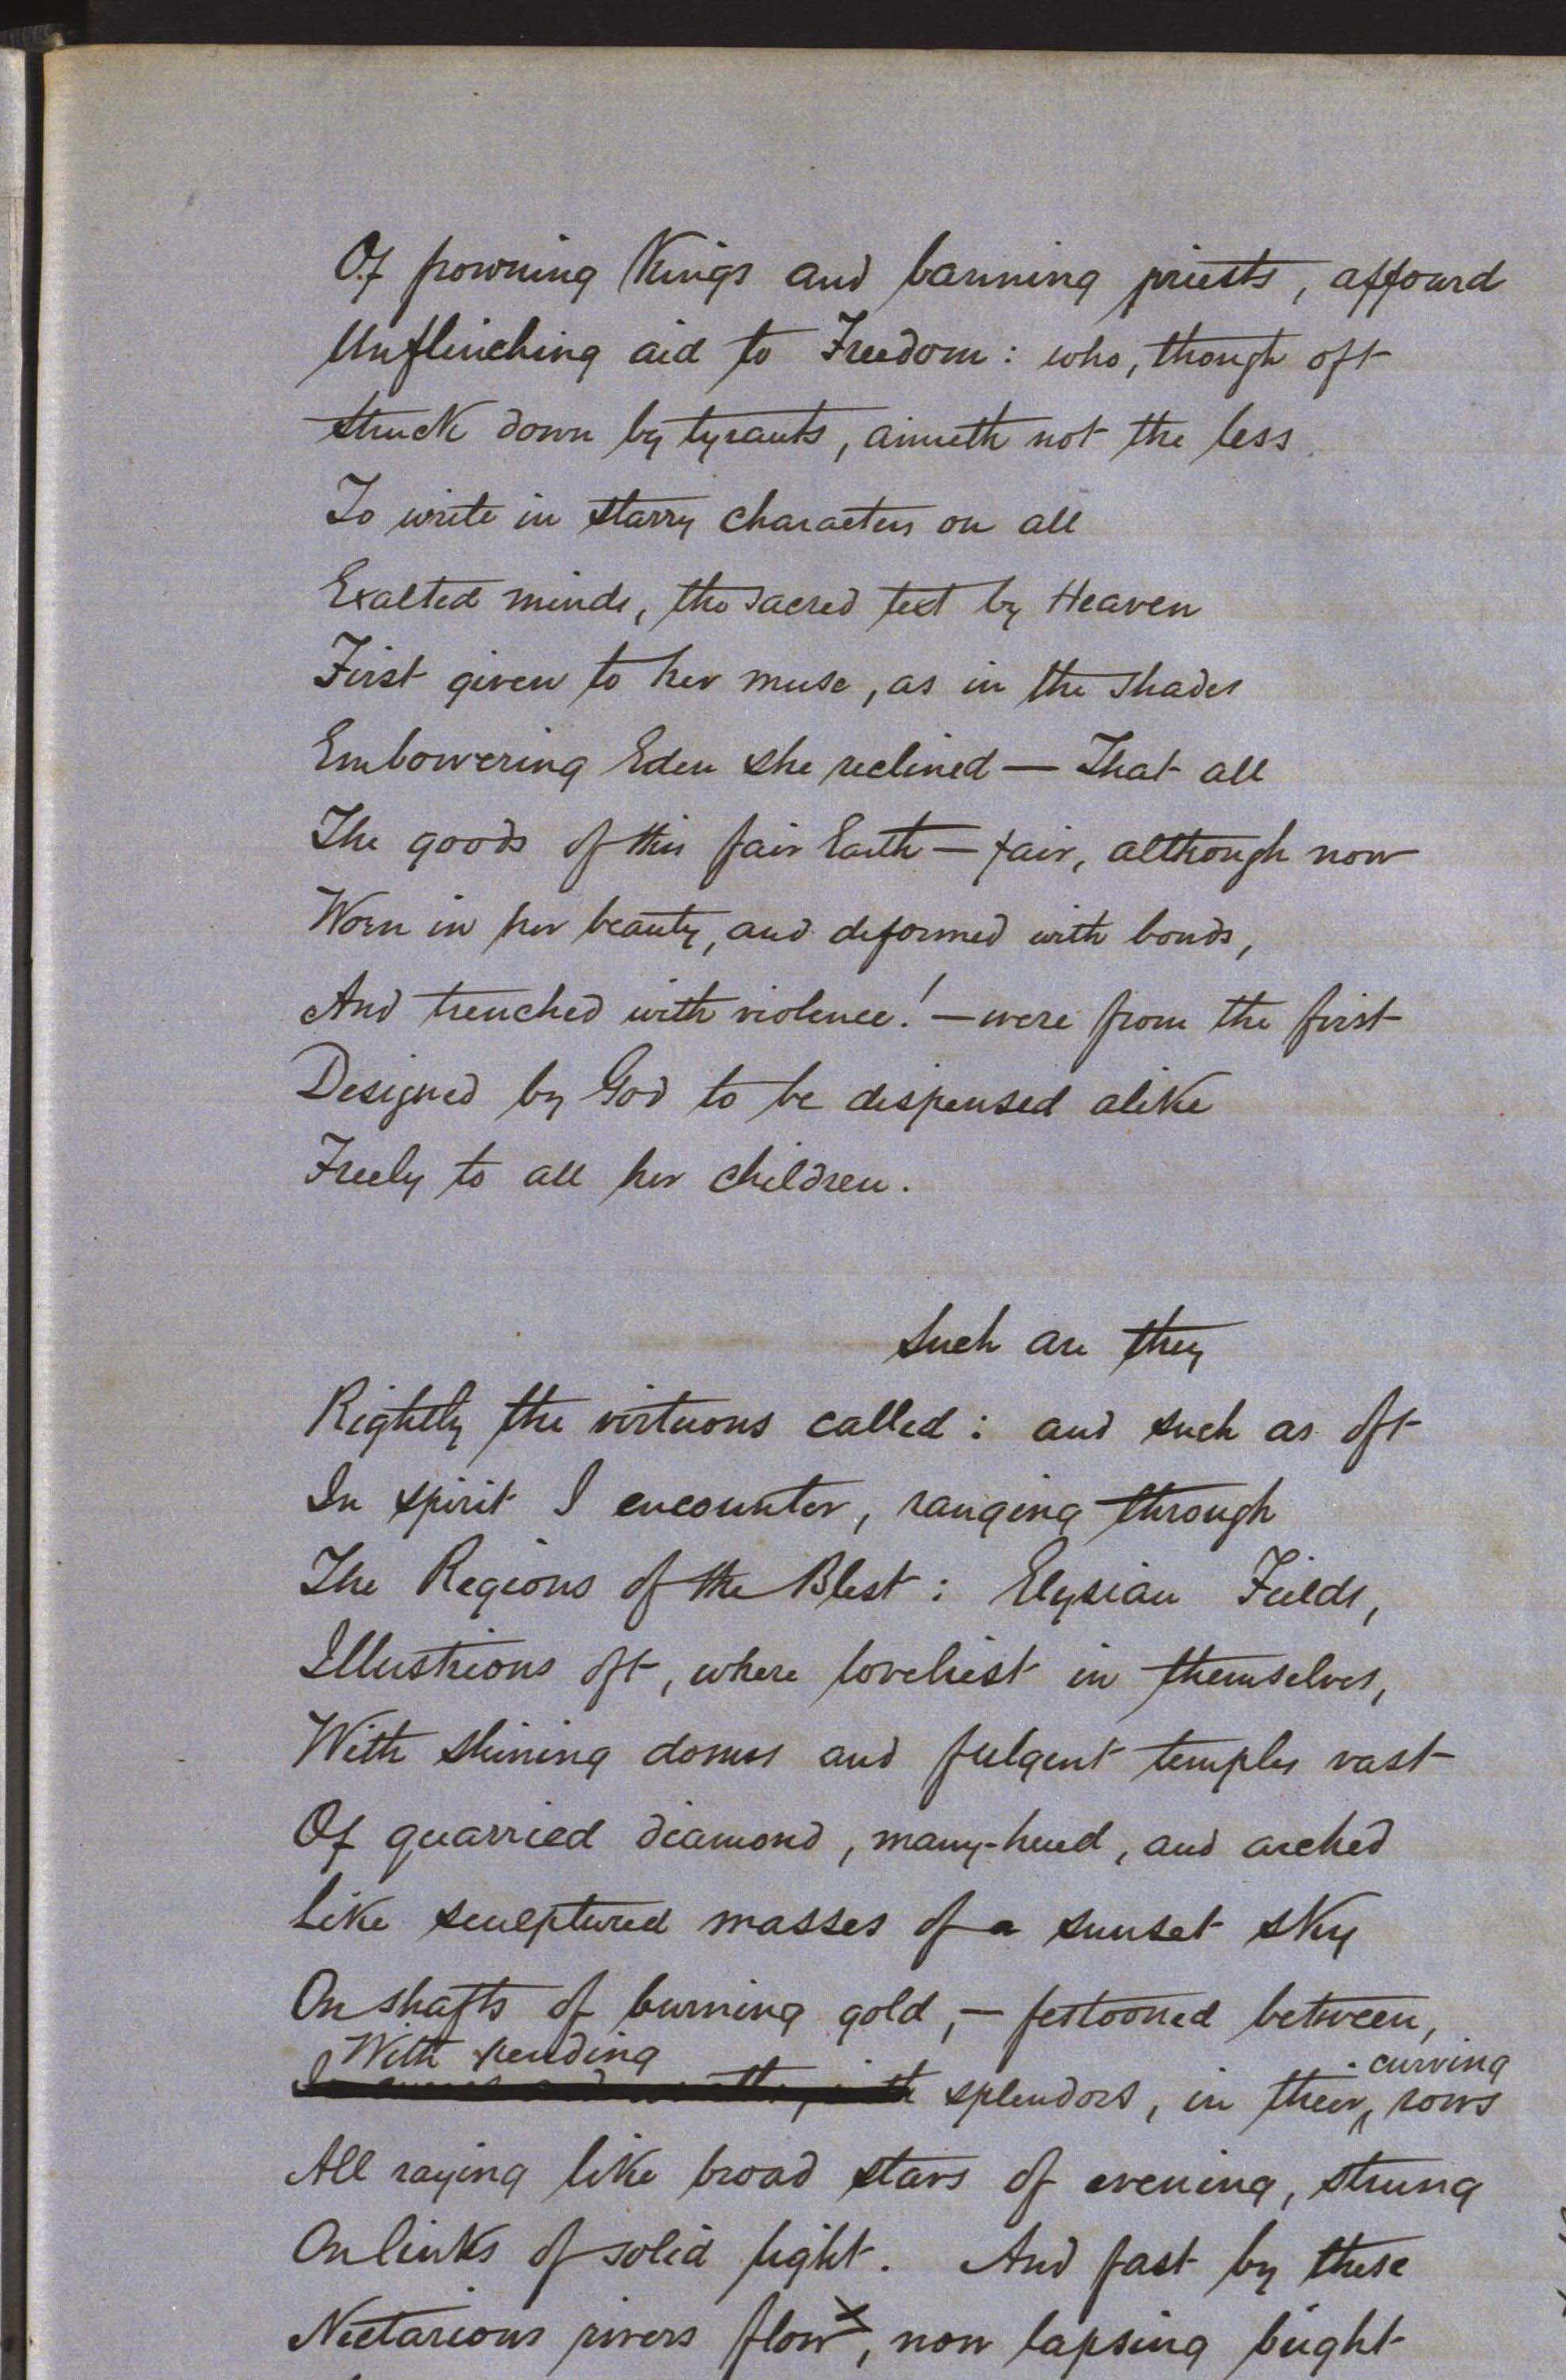 Of frowning Kings and banning priests, affourd
Unflinching aid to Freedom: who, though oft
Struck down by tyrants, aimeth not the less
To write in starry characters on all
Exalted minds, the sacred text by Heaven
First given to her muse, as in the shades
Embowering Eden she reclined — That all
The goods of this fair Earth — fair, although now
Worn in her beauty, and deformed with bonds,
And trenched with violence! — were from the first
Designed by God to be dispensed alike
Freely to all her children.
Such are they
Rightly the virtuous called: and such as oft
In spirit I encounter, ranging through
The Regions of the Blest: Elysian Fields,
Illustrious oft, where loveliest in themselves,
With shining domes and fulgent temples vast
Of quarried diamond, many-hued, and arched
Like sculptured masses of a sunset sky
On shafts of burning gold, — festooned between,
With pending curving
splendors, in their, rows
All raying like broad stars of evening, strung
On links of solid light. And fast by these
Nectarious rivers flow x, now lapsing bright